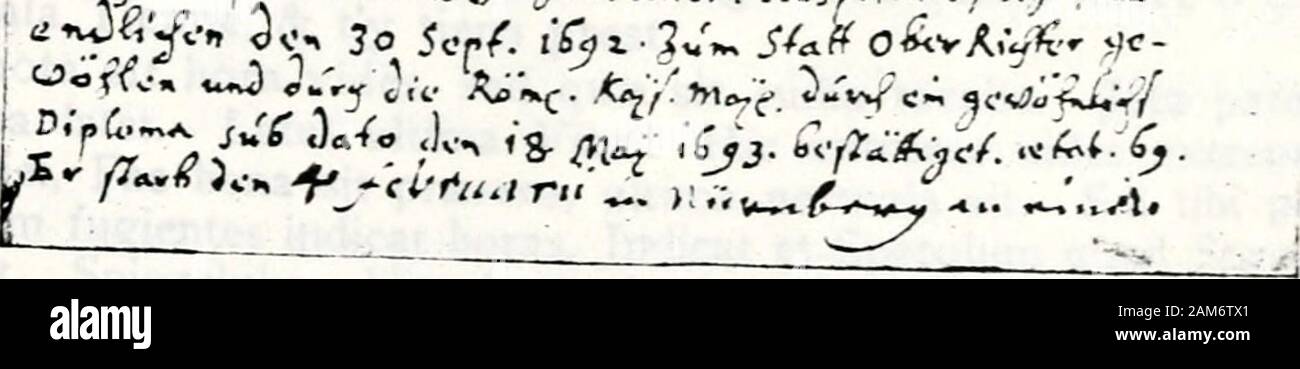 endlichen den 30 Sept. 1692. Zum Statt Ober Richter ge-
wöhlen und durch die Röm. Kayſ. May. durch ein gewöhnlich
Diploma sub dato den 18 May 1693. bestättiget. ætat. 69.
Er starb den 4 februarii in Nürnberg an
alamy
Image ID: 2AM6TX1
www.alamy.com